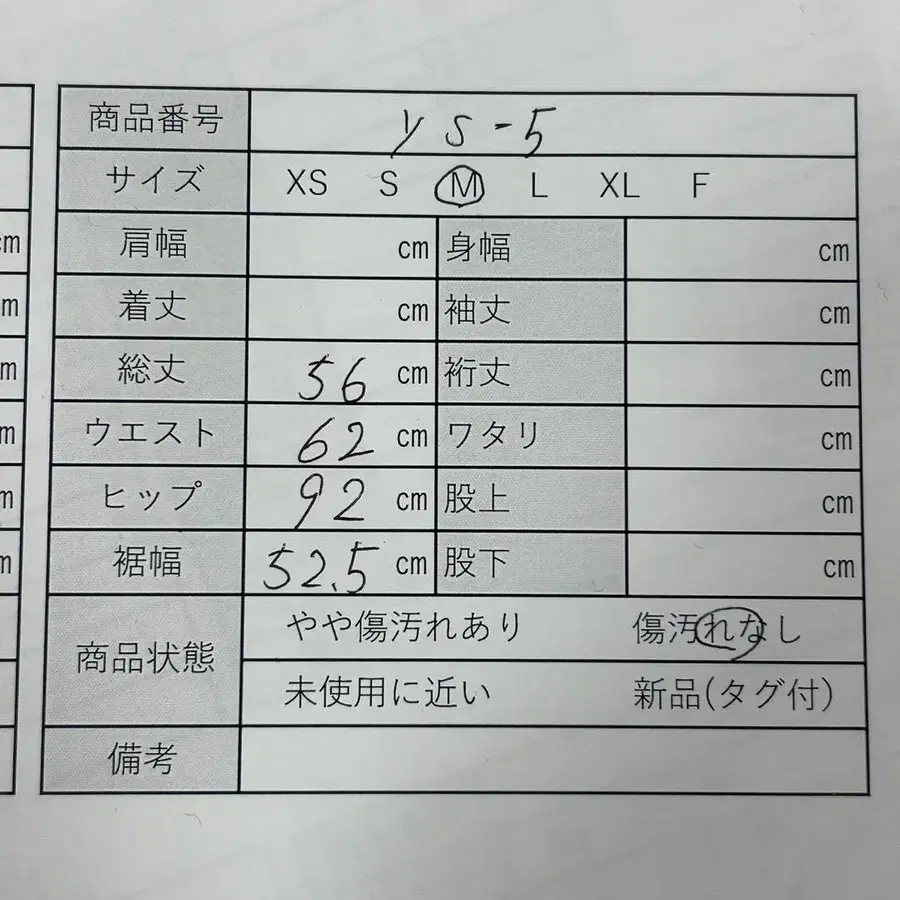 商品番号 ys-5
サイズ XS S M L XL F
cm 肩幅 cm 身幅 cm
cm 着丈 cm 袖丈 cm
cm 総丈 56 cm 裄丈 cm
cm ウエスト 62 cm ワタリ cm
cm ヒップ 92 cm 股上 cm
cm 裾幅 52.5 cm 股下 cm
商品状態 やや傷汚れあり 傷汚れなし
未使用に近い 新品(タグ付)
備考